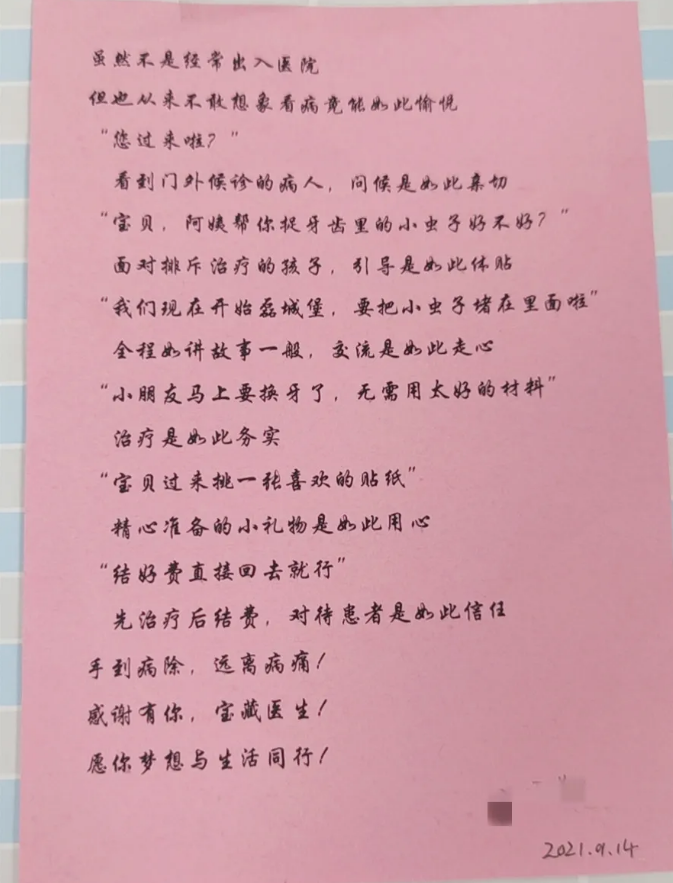 虽然不是经常出入医院
但也从来不敢想象看病竟能如此愉悦
“您过来啦？”
看到门外候诊的病人，问候是如此亲切
“宝贝，阿姨帮你捉牙齿里的小虫子好不好？”
面对排斥治疗的孩子，引导是如此体贴
“我们现在开始磊城堡，要把小虫子堵在里面啦”
全程如讲故事一般，交流是如此走心
“小朋友马上要换牙了，无需用太好的材料”
治疗是如此务实
“宝贝过来挑一张喜欢的贴纸”
精心准备的小礼物是如此用心
“结好费直接回去就行”
先治疗后结费，对待患者是如此信任
手到病除，远离病痛！
感谢有你，宝藏医生！
愿你梦想与生活同行！
2021.9.14